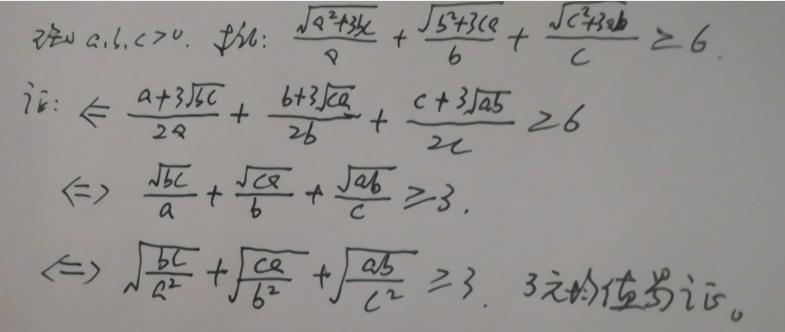 已知 a,b,c>0. 求证: \frac{\sqrt{a^2+3bc}}{a} + \frac{\sqrt{b^2+3ca}}{b} + \frac{\sqrt{c^2+3ab}}{c} ≥ 6.
证: ⇐ \frac{a+3\sqrt{bc}}{2a} + \frac{b+3\sqrt{ca}}{2b} + \frac{c+3\sqrt{ab}}{2c} ≥ 6
⇔ \frac{\sqrt{bc}}{a} + \frac{\sqrt{ca}}{b} + \frac{\sqrt{ab}}{c} ≥ 3.
⇔ \sqrt{\frac{bc}{a^2}} + \sqrt{\frac{ca}{b^2}} + \sqrt{\frac{ab}{c^2}} ≥ 3. 3元均值易证。